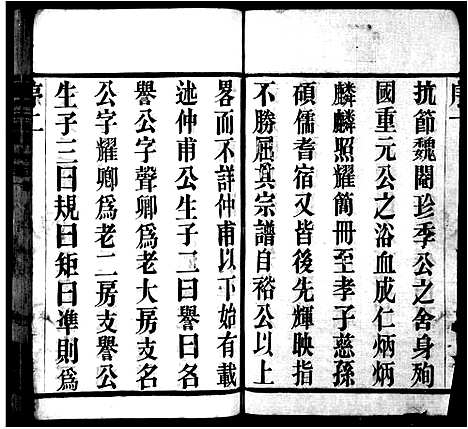 抗節魏閹珍季公之舍身殉
國重元公之浴血成仁炳炳
麟麟照耀簡冊至孝子慈孫
碩儒耆宿又皆後先輝映指
不勝屈其宗譜自裕公以上
畧而不詳仲甫以下始有載
述仲甫公生子二曰譽曰名
譽公字聲卿爲老大房支名
公字耀卿爲老二房支譽公
生子三曰規曰矩曰準則爲
序二